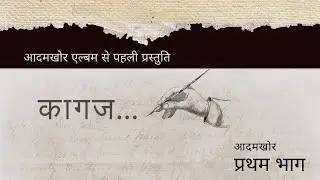 आदमखोर एल्बम से पहली प्रस्तुति
कागज...
आदमखोर
प्रथम भाग